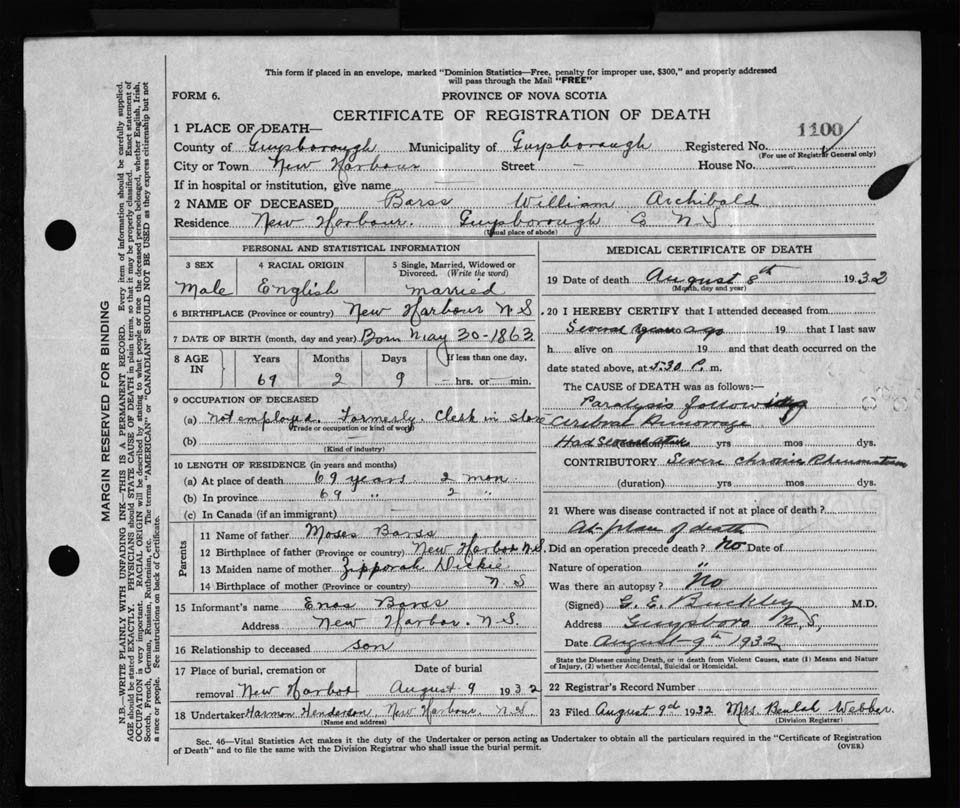 This form if placed in an envelope, marked "Dominion Statistics—Free, penalty for improper use, $300," and properly addressed
will pass through the Mail "FREE"
FORM 6. PROVINCE OF NOVA SCOTIA
CERTIFICATE OF REGISTRATION OF DEATH
1 PLACE OF DEATH— 1100
County of Guysborough Municipality of Guysborough Registered No.
(For use of Registrar General only)
City or Town New Harbour Street – House No.
If in hospital or institution, give name
2 NAME OF DECEASED Barss William Archibald
Residence New Harbour. Guysborough Co N.S
(Usual place of abode)
PERSONAL AND STATISTICAL INFORMATION
3 SEX 4 RACIAL ORIGIN 5 Single, Married, Widowed or
Divorced. (Write the word)
Male English married
6 BIRTHPLACE (Province or country) New Harbour N.S
7 DATE OF BIRTH (month, day and year) Born May 30-1863
8 AGE IN Years Months Days If less than one day,
69 2 9 hrs. or min.
9 OCCUPATION OF DECEASED
(a) not employed. Formerly. Clerk in store
(Trade or occupation or kind of work)
(b)
(Kind of industry)
10 LENGTH OF RESIDENCE (in years and months)
(a) At place of death 69 years 2 mon
(b) In province 69 " 2 "
(c) In Canada (if an immigrant)
Parents
11 Name of father Moses Barss
12 Birthplace of father (Province or country) New Harbor N.S.
13 Maiden name of mother Zipporah Dickie
14 Birthplace of mother (Province or country) N.S
15 Informant's name Enos Barss
Address New Harbor. N.S.
16 Relationship to deceased son
17 Place of burial, cremation or Date of burial
removal New Harbor August 9 1932
18 Undertaker Harmon Henderson, New Harbour. N.S
(Name and address)
MEDICAL CERTIFICATE OF DEATH
19 Date of death August 8th 1932
(Month, day and year)
20 I HEREBY CERTIFY that I attended deceased from
Several years ago 19 that I last saw
h alive on 19 and that death occurred on the
date stated above, at 5.30 P. m.
The CAUSE OF DEATH was as follows:
Paralysis following
Cerebral Hemorrage
Had yrs mos dys.
CONTRIBUTORY Severe Chronic Rheumatism
(duration) yrs. mos. dys.
21 Where was disease contracted if not at place of death?
At place of death
Did an operation precede death? No Date of
Nature of operation "
Was there an autopsy? No
(Signed) G. E. Buckley M.D.
Address Guysboro N.S,
Date August 9th 1932
State the Disease causing Death, or in death from Violent Causes, state (1) Means and Nature
of Injury, (2) whether Accidental, Suicidal or Homicidal.
22 Registrar's Record Number
23 Filed August 9d 1932 Mrs Beulah Webber.
(Division Registrar)
Sec. 46—Vital Statistics Act makes it the duty of the Undertaker or person acting as Undertaker to obtain all the particulars required in the "Certificate of Registration
of Death" and to file the same with the Division Registrar who shall issue the burial permit. (OVER)
MARGIN RESERVED FOR BINDING
N.B.—WRITE PLAINLY WITH UNFADING INK—THIS IS A PERMANENT RECORD. Every item of information should be carefully supplied.
AGE should be stated EXACTLY. PHYSICIANS should STATE CAUSE OF DEATH in plain terms, so that it may be properly classified. Exact statement of
OCCUPATION is very important. RACIAL ORIGIN will be described by stating to what people or race the deceased person belonged, whether English, Irish,
Scotch, French, German, Russian, Ruthenian, etc. The terms "AMERICAN" or "CANADIAN" SHOULD NOT BE USED as they express citizenship but not
a race or people. See instructions on back of Certificate.